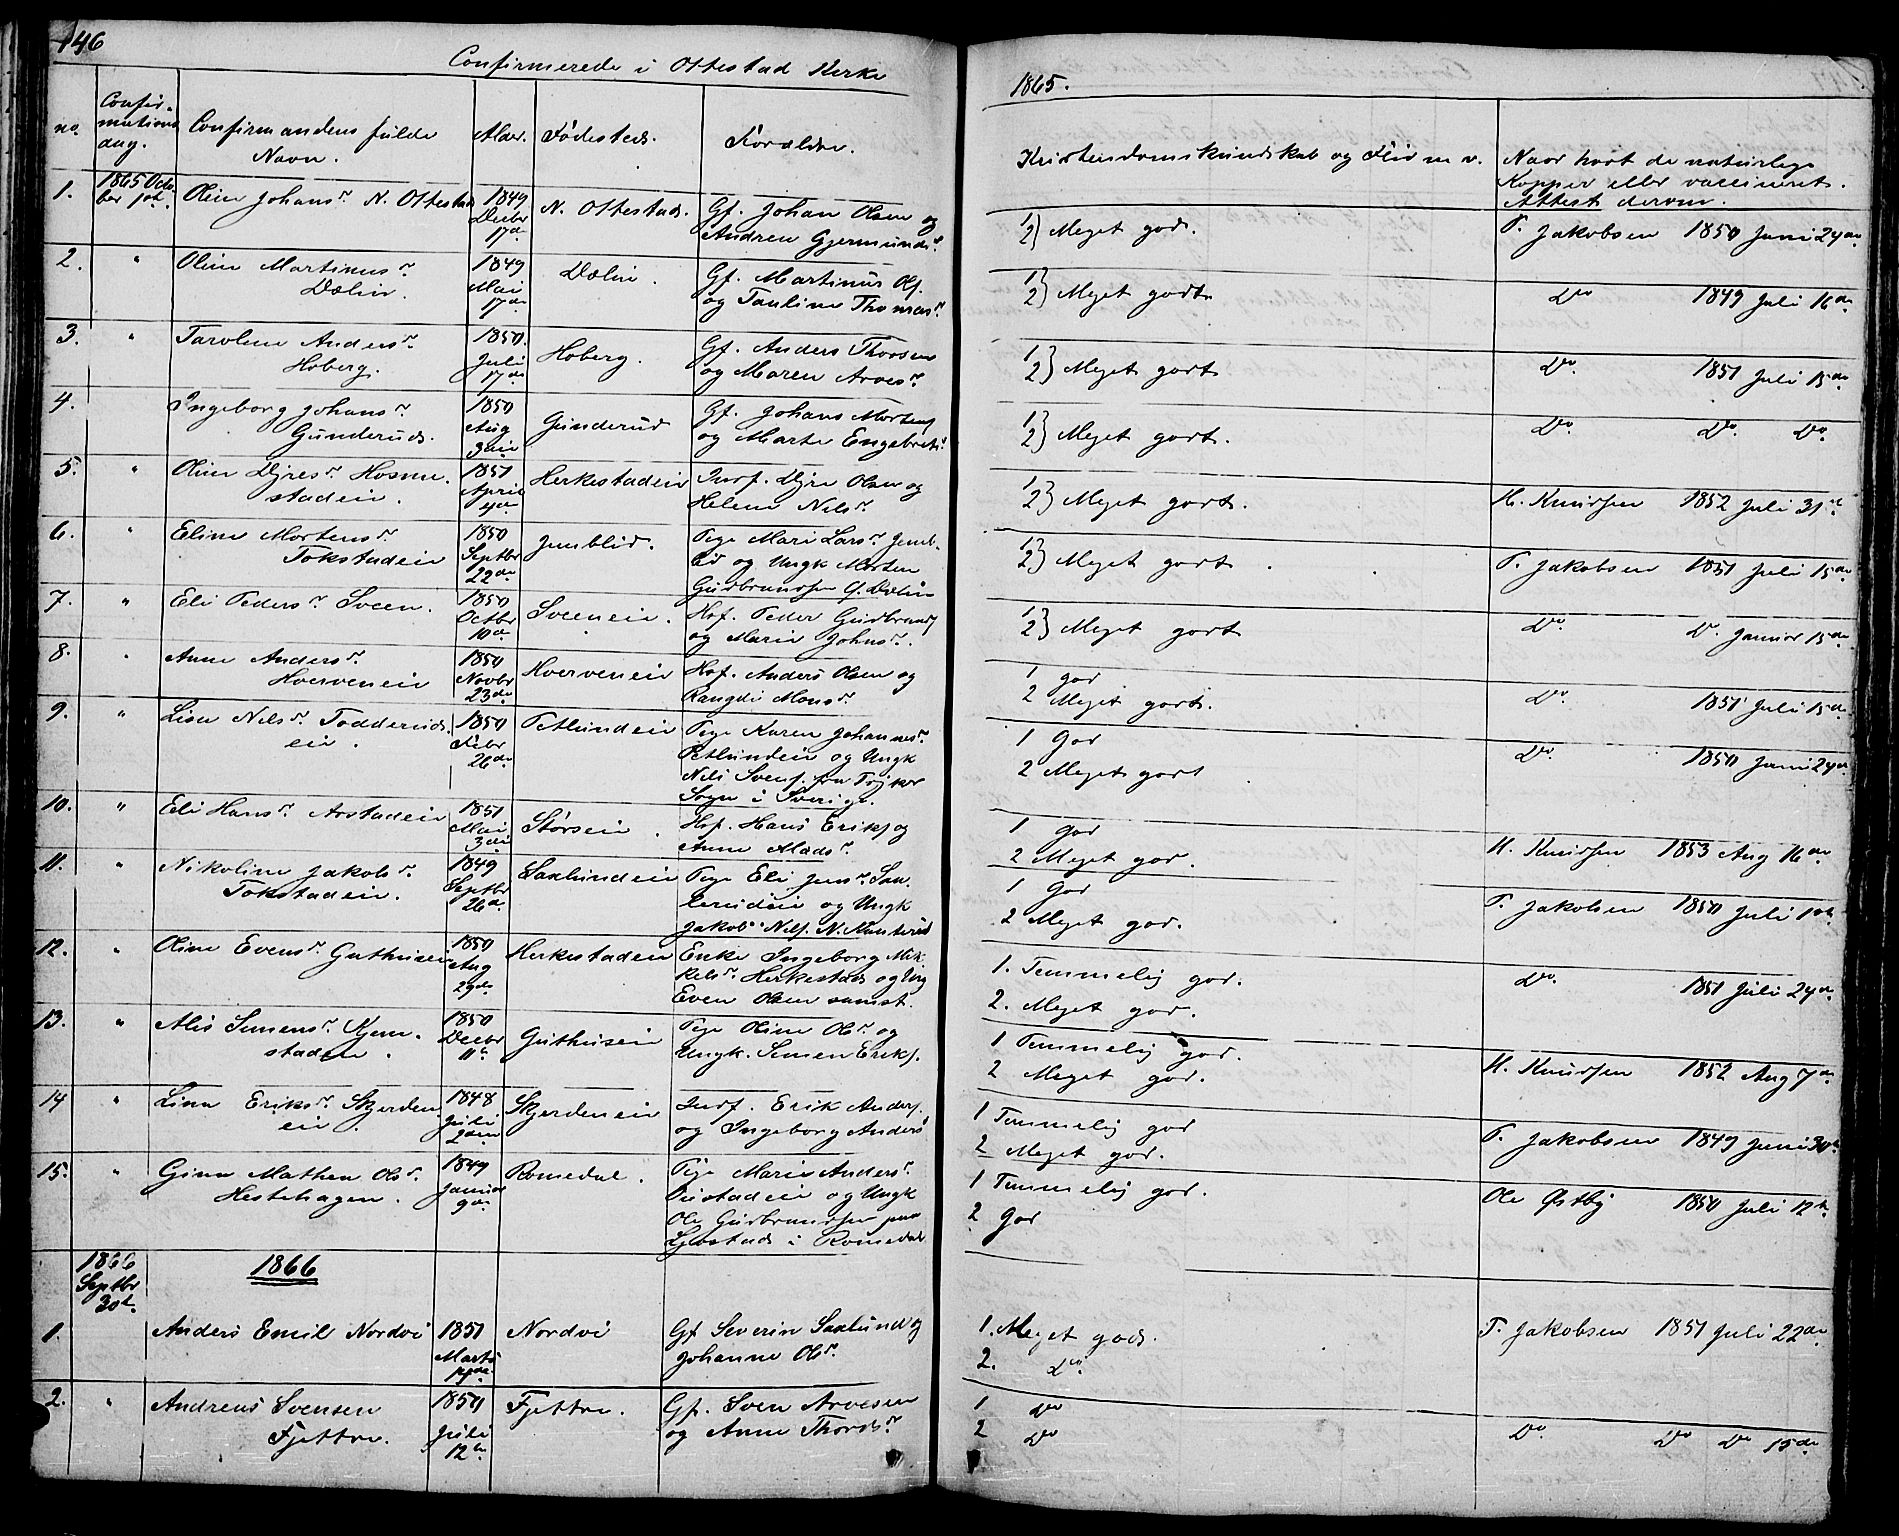 146
Confirmerede i Ottestad Kirke
1865.
no.
Confir-
mations
dag.
Confirmandens fulde
Navn.
Alder.
Fødested.
Forældre.
Kristendomskundskab og Flid m. v.
Naar havt de naturlige
Kopper eller vaccineret.
Attest derom.
1. 1865 Octo-
ber 1ste.
Oline Johansdr. N. Ottestad
1849
Decbr
17de
N. Ottestad.
Gf. Johan Olsen og
Andrea Gjermundsdr.
1) 2) Meget god.
T. Jakobsen 1850 Juni 24de
2. "
Oline Martinusdr.
Dælin.
1849
Mai
17de
Dælin.
Gf. Martinus Ols.
og Pauline Thomasdr.
1) 2) Meget godt
Do 1849 Juli 16de
3. "
Karoline Andersdr.
Hoberg.
1850.
Juli
17de
Hoberg.
Gf. Anders Thorsen
og Maren Arvesdr.
1) 2) Meget godt
Do. 1851 Juli 15de
4.
Ingeborg Johansdr.
Gunderud.
1850
Aug
3die
Gunderud
Gf. Johans Mortens
og Marte Engebretsdr.
1) 2) Meget godt.
Do. Do. Do.
5. "
Oline Dyresdr. Hosme-
stadeie.
1851
April
Herkestadeie
Inds. Dyre Olsen og
Helene Nilsdr.
1) 2) Meget godt.
H. Knudsen 1852 Juli 31te
6. "
Eline Mortensdr.
Tokstadeie
1850
Septbr
22de
Jemblid.
Pige Mari Larsdr. Jemb-
lid og Ungk Morten
Gudbrandsen Dælin
1) 2) Meget godt
T. Jakobsen 1851 Juli 15de
7. "
Eli Pedersdr. Sveen.
1850
Octbr
10de
Sveeneie.
Hsf. Peder Gudbrands
og Marie Johnsdr.
1) 2) Meget godt
Do Do. Januar 15de
8. "
Anne Andersdr.
Hverveneie
1850
Novbr
23de
Hverveneie
Hsf. Anders Olsen og
Rangdi Monsdr.
1 god
2 Meget godt.
Do. 1851 Juli 15de
9. "
Lisa Nilsdr. Fodderuds-
eie.
1850
Febr
26de
Petlundeie
Pige Karen Johannesdr.
Petlundeie og Ungk
Nils Svens. fra
Sogn i Sverige.
1 God
2 Meget godt
Do. 1850 Juni 24de
10. "
Eli Hansdr. Arstadeie
1851
Mai
3die
Størseie.
Hsf. Hans Eriks. og
Anne Madsdr.
1 god
2 Meget god.
H. Knudsen 1853 Aug 16de
11. "
Nikoline Jakobsdr.
Tokstadeie.
1849
Septbr
26de
Saxlundeie
Pige Eli Jensdr. Sax-
lundeie og Ungk
Jakob Nils.
1 God
2 Meget god.
T. Jakobsen 1850 Juli 1ste
12. "
Oline Evensdr. Guthuseie
1850
Aug
29de
Herkestadeie
Enke Ingeborg Mik-
kelsdr. Herkestad og Ung
Even Olsen samst.
1. Temmelig god.
2. Meget god.
Do. 1851 Juli 24de
13. "
Alis Simensdr. Kjem-
stadeie.
1850
Decbr
11te
Guthuseie
Pige Oline Olsdr. og
Ungk. Simen Eriks.
1 Temmelig god.
2 Meget god.
H. Knudsen 1852 Aug 7de
14 "
Lina Eriksdr. Skjerden-
eie.
1848
Juli
2den
Skjerdeneie
Inds. Erik Anders.
og Ingeborg Andersdr
1 Temmelig god
2 Meget god.
T. Jakobsen 1849 Juni 30te
15. "
Gina Mathea Olsdr.
Hestehagen.
1849
Januar
9de
Romedal.
Pige Marie Andersdr.
og Ungk
Ole Gudbrandsen paa
Ljøstad i Romedal
1 Temmelig god.
2 God
Ole Østby 1850 Juli 12te
1866
Septbr
30te.
1866
1.
Anders Emil Nordvi
1851
Marts
Nordvi
Gf Severin Saxlund og
Johanne Olsdr.
1. Meget god.
2. Do.
T. Jakobsen 1851 Juli 22de
2. "
Andreas Svensen
Fjettre.
1850
Juli
12te
Fjettre.
Gf. Sven Arvesen
og Anne Thordsdr.
1 do
2 Do
Do. Do Do 15de